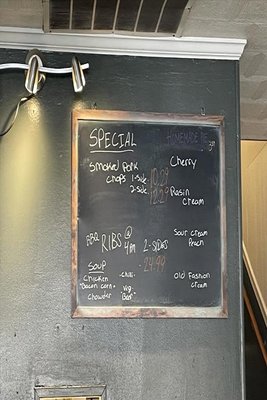 SPECIAL
HOMEMADE PIE
Smoked Pork
Chops 1-side 10.29
2-side 12.29
Cherry
Raisin
Cream
BBQ RIBS @ 4PM 2-SIDES
24.99
Sour Cream
Peach
SOUP
Chicken
"Bacon Corn"
Chowder
-Chili-
Veg.
"Beef"
Old Fashion
Cream